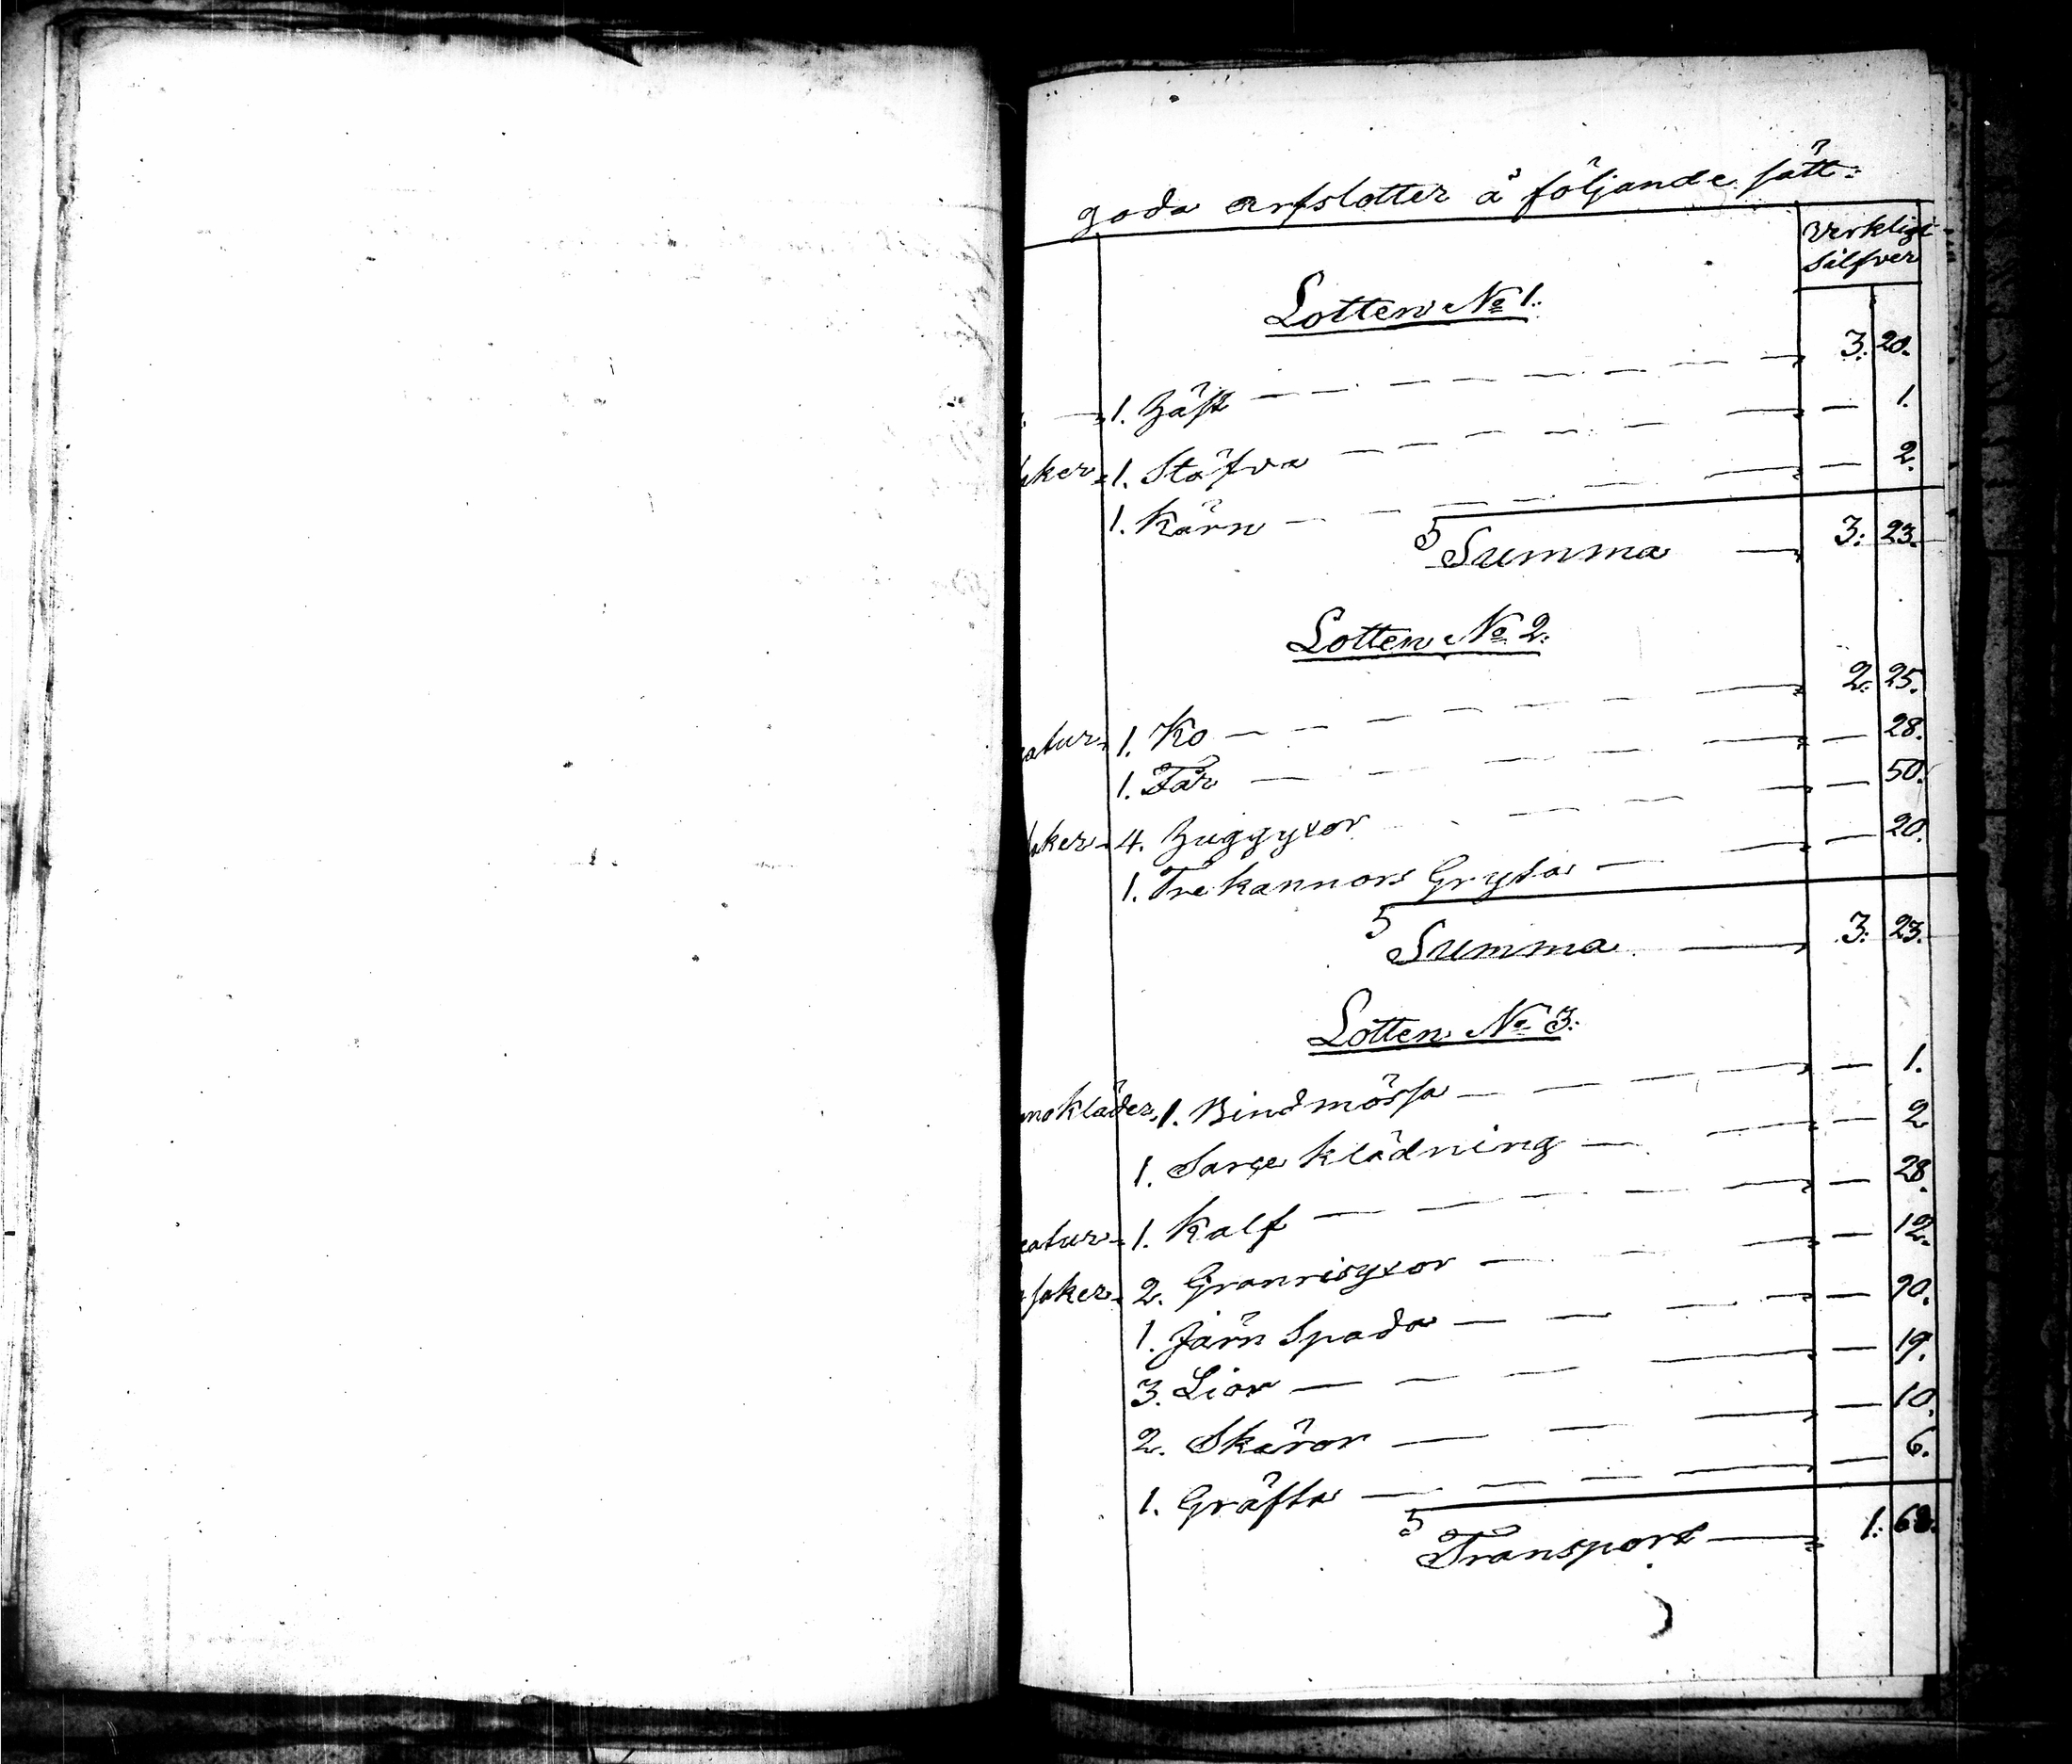 goda arfslotter å följande sätt:
Verkligt
Silfver
Lotten No 1.
1. Häst — 3. 20.
saker 1. Stäfva — 1.
1. Kärn — 2.
Summa 3. 23.
Lotten No 2.
eatur 1. Ko — 2. 25.
1. Får — 28.
saker 4. Huggyxor — 50.
1. Tre kannors Gryta — 20.
Summa 3. 23.
Lotten No 3.
nokläder, 1. Bindmössa — 1.
1. Sarge klädning — 2
eatur 1. Kalf — 28.
saker 2. Granrisyxor — 12.
1. Järn Spada — 90.
3. Liar — 19.
2. Skäror — 10.
1. Gräfta — 6.
Transport 1. 68.